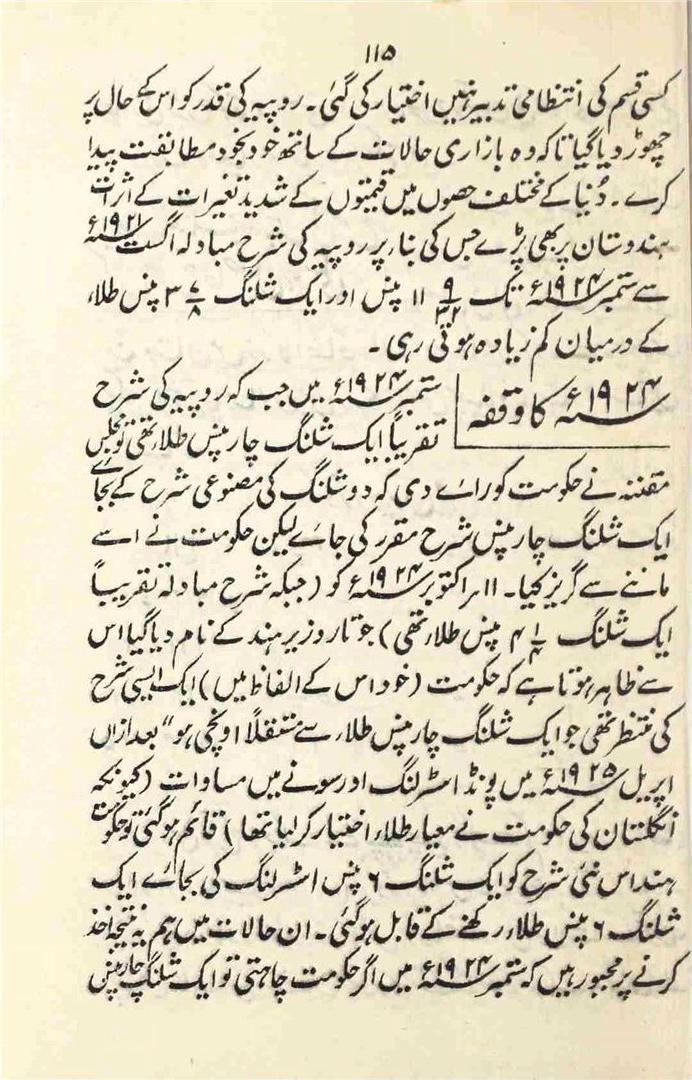 ۱۱۵
کسی قسم کی انتظامی تدبیر نہیں اختیار کی گئی۔ روپیہ کی قدر کو اس کے حال پر
چھوڑ دیا گیا تاکہ وہ بازاری حالات کے ساتھ خود بخود مطابقت پیدا
کرے۔ دُنیا کے مختلف حصوں میں قیمتوں کے شدید تغیرات کے اثرات
ہندوستان پر بھی پڑے جس کی بنا پر روپیہ کی شرح مبادلہ اگست ۱۹۲۱ء
سے ستمبر ۱۹۲۴ء تک ۹/۳۲ ۱۱ پنس اور ایک شلنگ ۷/۸ ۳ پنس طلاء
کے درمیان کم زیادہ ہوتی رہی۔
۱۹۲۴ء کا وقفہ
ستمبر ۱۹۲۴ء میں جب کہ روپیہ کی شرح
تقریباً ایک شلنگ چار پنس طلاء تھی تو مجلس
مقننہ نے حکومت کو رائے دی کہ دو شلنگ کی مصنوعی شرح کے بجائے
ایک شلنگ چار پنس شرح مقرر کی جائے لیکن حکومت نے اسے
ماننے سے گریز کیا۔ ۱۱؍ اکتوبر ۱۹۲۴ء کو (جبکہ شرح مبادلہ تقریباً
ایک شلنگ ۱/۴ ۴ پنس طلاء تھی) جو تار وزیر ہند کے نام دیا گیا اس
سے ظاہر ہوتا ہے کہ حکومت (خود اس کے الفاظ میں) ایک ایسی شرح
کی منتظر تھی جو ایک شلنگ چار پنس طلاء سے مستقلاً اونچی ہو“ بعد ازاں
اپریل ۱۹۲۵ء میں پونڈ اسٹرلنگ اور سونے میں مساوات (کیونکہ
انگلستان کی حکومت نے معیار طلاء اختیار کر لیا تھا) قائم ہوگئی تو حکومت
ہند اس نئی شرح کو ایک شلنگ ۶ پنس اسٹرلنگ کی بجائے ایک
شلنگ ۶ پنس طلاء رکھنے کے قابل ہوگئی۔ ان حالات میں ہم یہ نتیجہ اخذ
کرنے پر مجبور ہیں کہ ستمبر ۱۹۲۴ء میں اگر حکومت چاہتی تو ایک شلنگ چار پنس